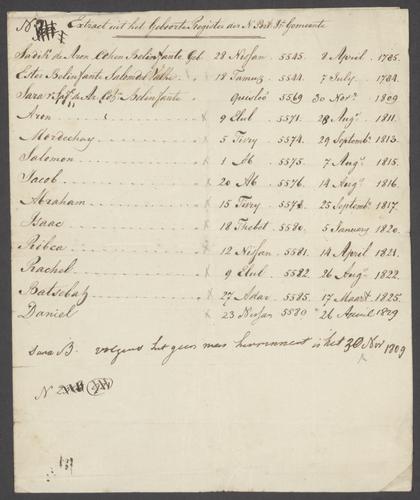 Extract uit het Geboorte Register der N. Port. Isr. Gemeente
Sadik de Aron Cohen Belinfante Geb. 28 Nissan 5545. 8 April 1785.
Ester Belinfante Salomons 18 Tamuz 5544. 7 July 1784.
Sara Belinfante Quisleb 5569 30 Novr. 1809
Aron 9 Elul 5571. 28 Augs. 1811.
Mordechay 5 Tisry 5574. 29 Septemb. 1813.
Salomon 1 Ab 5575. 7 Augs. 1815.
Jacob 20 Ab 5576. 14 Augs. 1816.
Abraham 15 Tisry 5578. 25 Septemb. 1817.
Isaac 18 Thebet 5580. 5 January 1820.
Ribca 12 Nissan 5581. 14 April 1821.
Rachel 9 Elul 5582. 26 Augs. 1822.
Batsebah 27 Adar 5585. 17 Maart 1825.
Daniel 23 Nissan 5580 26 April 1829
Sara B. volgens het geen men herinnert is het 30 Nov 1809
N